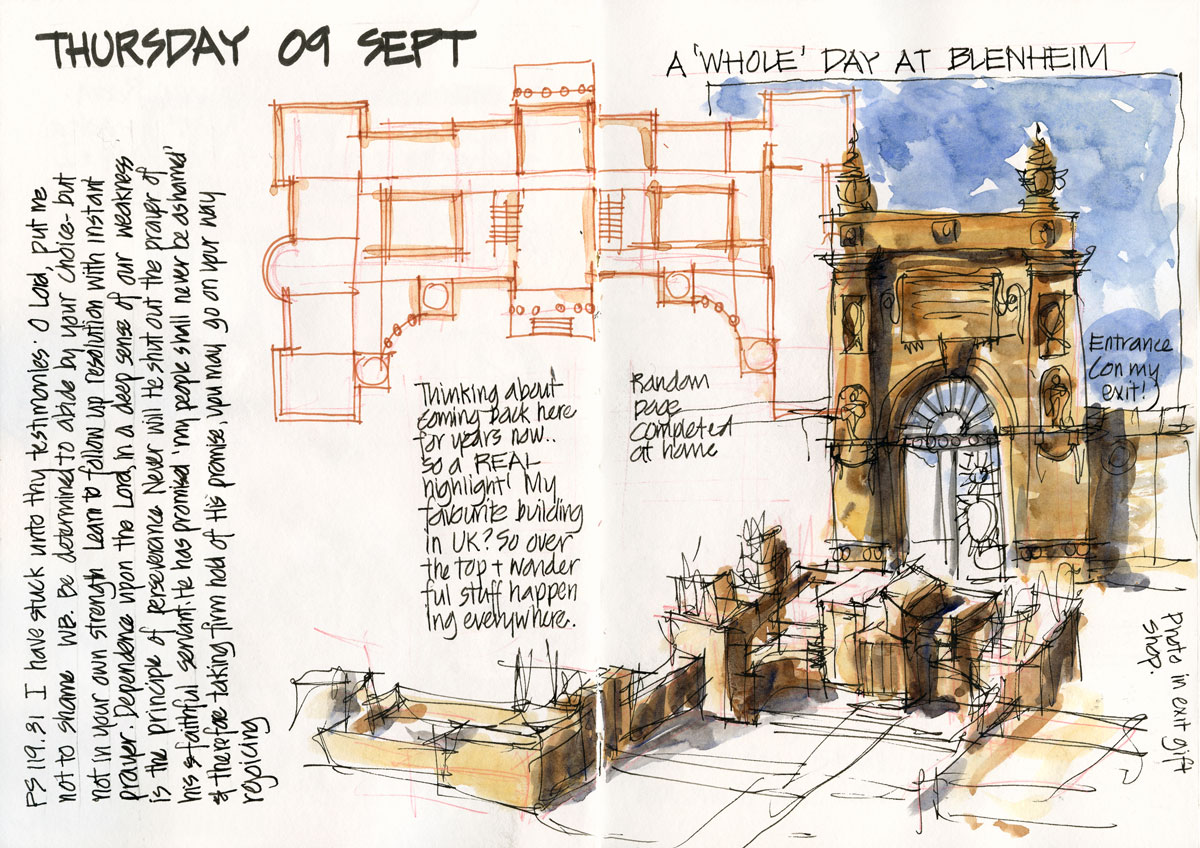 THURSDAY 09 SEPT
A 'WHOLE' DAY AT BLENHEIM
PS 119.31 I have stuck unto thy testimonies. O Lord, put me
not to shame WB. Be determined to abide by your choice - but
not in your own strength Learn to follow up resolution with instant
prayer. Dependence upon the Lord, in a deep sense of our weakness
is the principle of perseverance Never will He shut out the prayer of
his faithful servant. He has promised 'my people shall never be ashamed'
& therefore taking firm hold of His promise, you may go on your way
rejoicing
Thinking about
coming back here
for years now..
so a REAL
highlight! My
favourite building
in UK? So over
the top + wonder
ful stuff happen
ing everywhere..
Random
page
completed
at home
Entrance
(on my
exit!)
Photo in exit gift
shop.